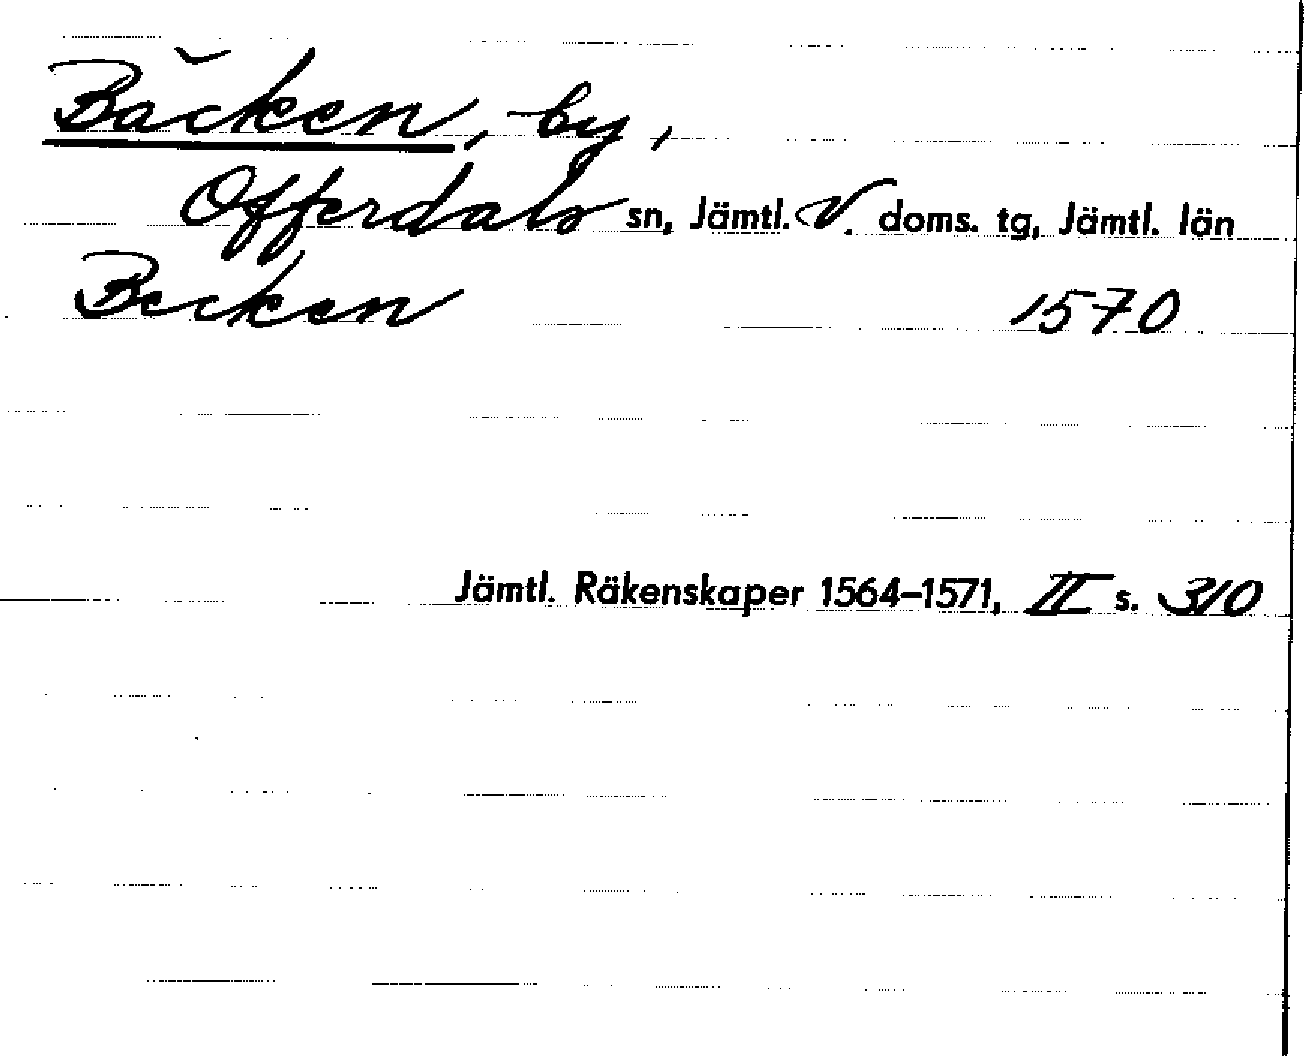 Bäcken, by,
Offerdals sn, Jämtl. V. doms. tg, Jämtl. län
Becken 1570
Jämtl. Räkenskaper 1564–1571, II s. 310